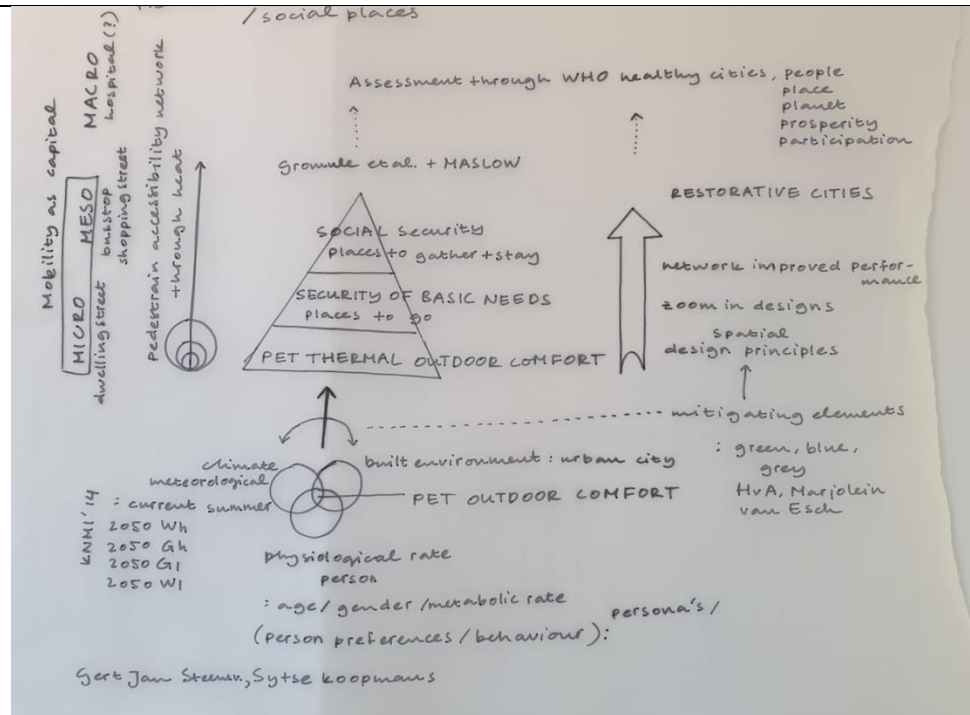 / social places
Assessment through WHO healthy cities, people
place
planet
prosperity
participation
Mobility as capital
MICRO MESO MACRO
dwellingstreet busstop hospital (?)
shopping street
Pedestrain accessibility network
through heat
et al. + MASLOW
SOCIAL security
places to gather + stay
SECURITY OF BASIC NEEDS
places to go
PET THERMAL OUTDOOR COMFORT
RESTORATIVE CITIES
network improved perfor-
mance
zoom in designs
spatial
design principles
mitigating elements
: green, blue,
grey
HvA, Marjolein
van Esch
climate
meteorological
: current summer
KNMI'14
2050 Wh
2050 Gh
2050 Gl
2050 Wl
built environment : urban city
PET OUTDOOR COMFORT
physiological rate
person
: age / gender / metabolic rate
(person preferences / behaviour):
persona's /
Gert Jan Sytse Koopmans